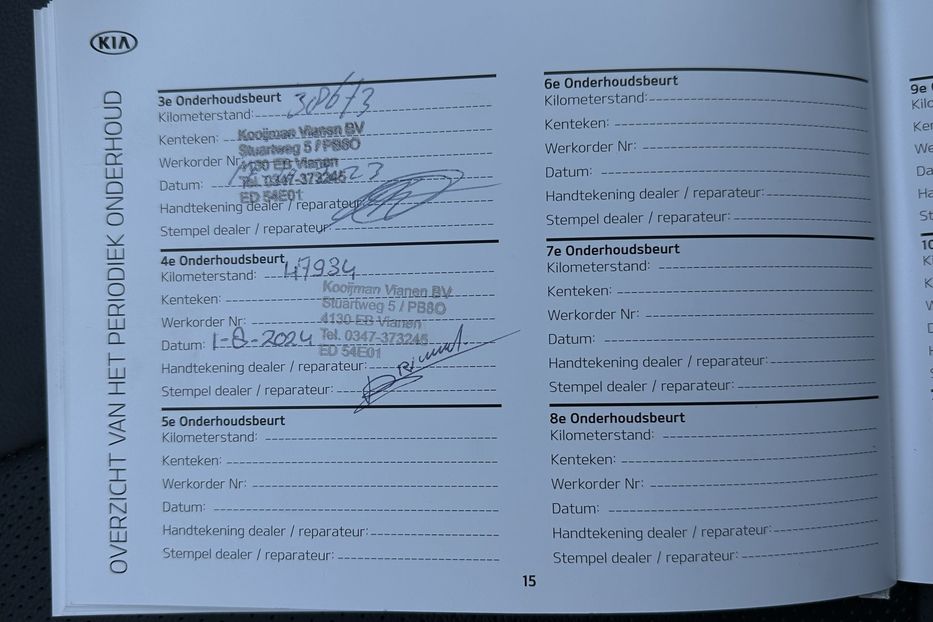 KIA
OVERZICHT VAN HET PERIODIEK ONDERHOUD
3e Onderhoudsbeurt
Kilometerstand: 38673
Kenteken:
Kooijman Vianen BV
Stuartweg 5 / PB80
Werkorder Nr:
4130 EB Vianen
Datum:
Tel. 0347-373245
ED 54E01
Handtekening dealer / reparateur:
Stempel dealer / reparateur:
4e Onderhoudsbeurt
Kilometerstand: 47934
Kenteken:
Kooijman Vianen BV
Stuartweg 5 / PB80
Werkorder Nr:
4130 EB Vianen
Datum: 1-8-2024
Tel. 0347-373245
ED 54E01
Handtekening dealer / reparateur:
Stempel dealer / reparateur:
5e Onderhoudsbeurt
Kilometerstand:
Kenteken:
Werkorder Nr:
Datum:
Handtekening dealer / reparateur:
Stempel dealer / reparateur:
6e Onderhoudsbeurt
Kilometerstand:
Kenteken:
Werkorder Nr:
Datum:
Handtekening dealer / reparateur:
Stempel dealer / reparateur:
7e Onderhoudsbeurt
Kilometerstand:
Kenteken:
Werkorder Nr:
Datum:
Handtekening dealer / reparateur:
Stempel dealer / reparateur:
8e Onderhoudsbeurt
Kilometerstand:
Kenteken:
Werkorder Nr:
Datum:
Handtekening dealer / reparateur:
Stempel dealer / reparateur:
15
9e
10